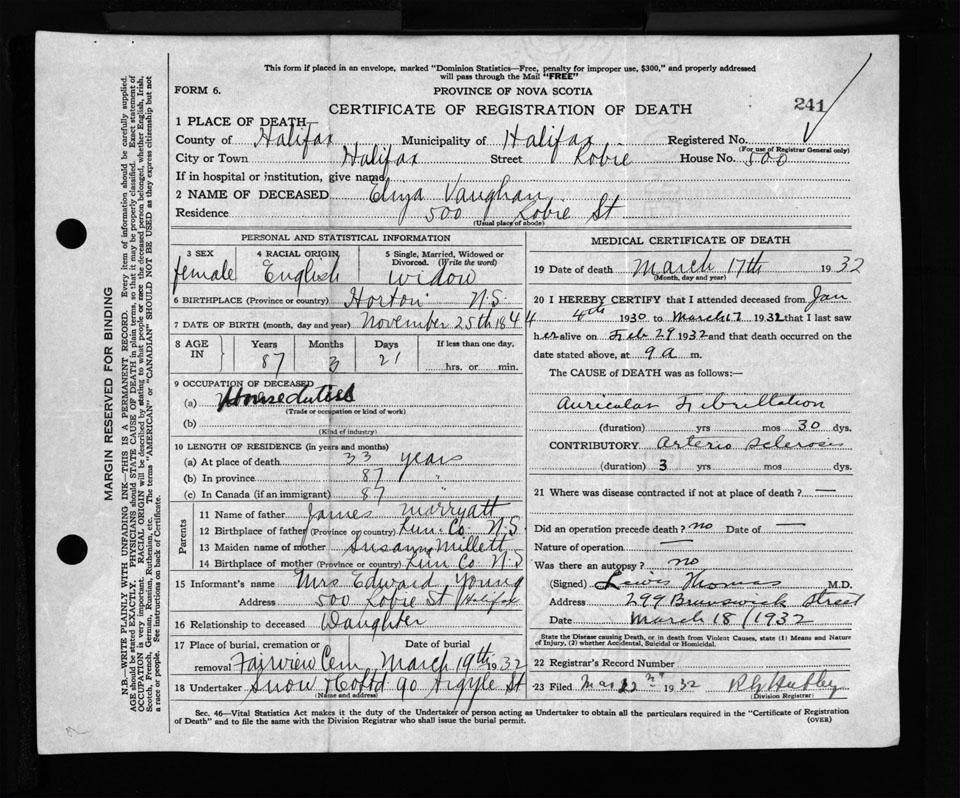 This form if placed in an envelope, marked "Dominion Statistics—Free, penalty for improper use, $300," and properly addressed
will pass through the Mail "FREE"
FORM 6. PROVINCE OF NOVA SCOTIA
CERTIFICATE OF REGISTRATION OF DEATH 241
1 PLACE OF DEATH
County of Halifax Municipality of Halifax Registered No.
(For use of Registrar General only)
City or Town Halifax Street Robie House No. 500
If in hospital or institution, give name
2 NAME OF DECEASED Eliza Vaughan
Residence 500 Robie St
(Usual place of abode)
PERSONAL AND STATISTICAL INFORMATION
3 SEX 4 RACIAL ORIGIN 5 Single, Married, Widowed or Divorced. (Write the word)
female English widow
6 BIRTHPLACE (Province or country) Horton N.S.
7 DATE OF BIRTH (month, day and year) November 25th 1844
8 AGE IN Years Months Days If less than one day,
87 3 21 hrs. or min.
9 OCCUPATION OF DECEASED
(a) House duties
(Trade or occupation or kind of work)
(b)
(Kind of industry)
10 LENGTH OF RESIDENCE (in years and months)
(a) At place of death 33 years
(b) In province 87 "
(c) In Canada (if an immigrant) 87 "
Parents
11 Name of father James Marryatt
12 Birthplace of father (Province or country) Lun. Co N.S.
13 Maiden name of mother Susann Millett
14 Birthplace of mother (Province or Country) Lun Co N.S
15 Informant's name Mrs Edward Young
Address 500 Robie St Halifax
16 Relationship to deceased Daughter
17 Place of burial, cremation or removal Date of burial
Fairview Cem March 19th 1932
18 Undertaker Snow & Co Ltd 90 Argyle St
(Name and address)
MEDICAL CERTIFICATE OF DEATH
19 Date of death March 17th 1932
(Month, day and year)
20 I HEREBY CERTIFY that I attended deceased from Jan
4th 1930 to March 17 1932 that I last saw
her alive on Feb 29 1932 and that death occurred on the
date stated above, at 9 a m.
The CAUSE of DEATH was as follows:—
Auricular Fibrillation
(duration) yrs mos 30 ds.
CONTRIBUTORY Arterio Sclerosis
(duration) 3 yrs mos ds.
21 Where was disease contracted if not at place of death? —
Did an operation precede death? no Date of —
Nature of operation —
Was there an autopsy? no
(Signed) Lewis Thomas M.D.
Address 299 Brunswick Street
Date March 18/1932
State the Disease causing Death, or in death from Violent Causes, state (1) Means and Nature
of Injury, (2) whether Accidental, Suicidal or Homicidal.
22 Registrar's Record Number
23 Filed Mar 22nd 1932
(Division Registrar)
Sec. 46—Vital Statistics Act makes it the duty of the Undertaker or person acting as Undertaker to obtain all the particulars required in the "Certificate of Registration
of Death" and to file the same with the Division Registrar who shall issue the burial permit. (OVER)
MARGIN RESERVED FOR BINDING
N.B.—WRITE PLAINLY WITH UNFADING INK—THIS IS A PERMANENT RECORD. Every item of information should be carefully supplied.
AGE should be stated EXACTLY. PHYSICIANS should STATE CAUSE OF DEATH in plain terms, so that it may be properly classified. Exact statement of
OCCUPATION is very important. RACIAL ORIGIN will be described by stating to what people or race the deceased person belonged, whether English, Irish,
Scotch, French, German, Russian, Ruthenian, etc. The terms "AMERICAN" or "CANADIAN" SHOULD NOT BE USED as they express citizenship but not
a race or people. See instructions on back of Certificate.